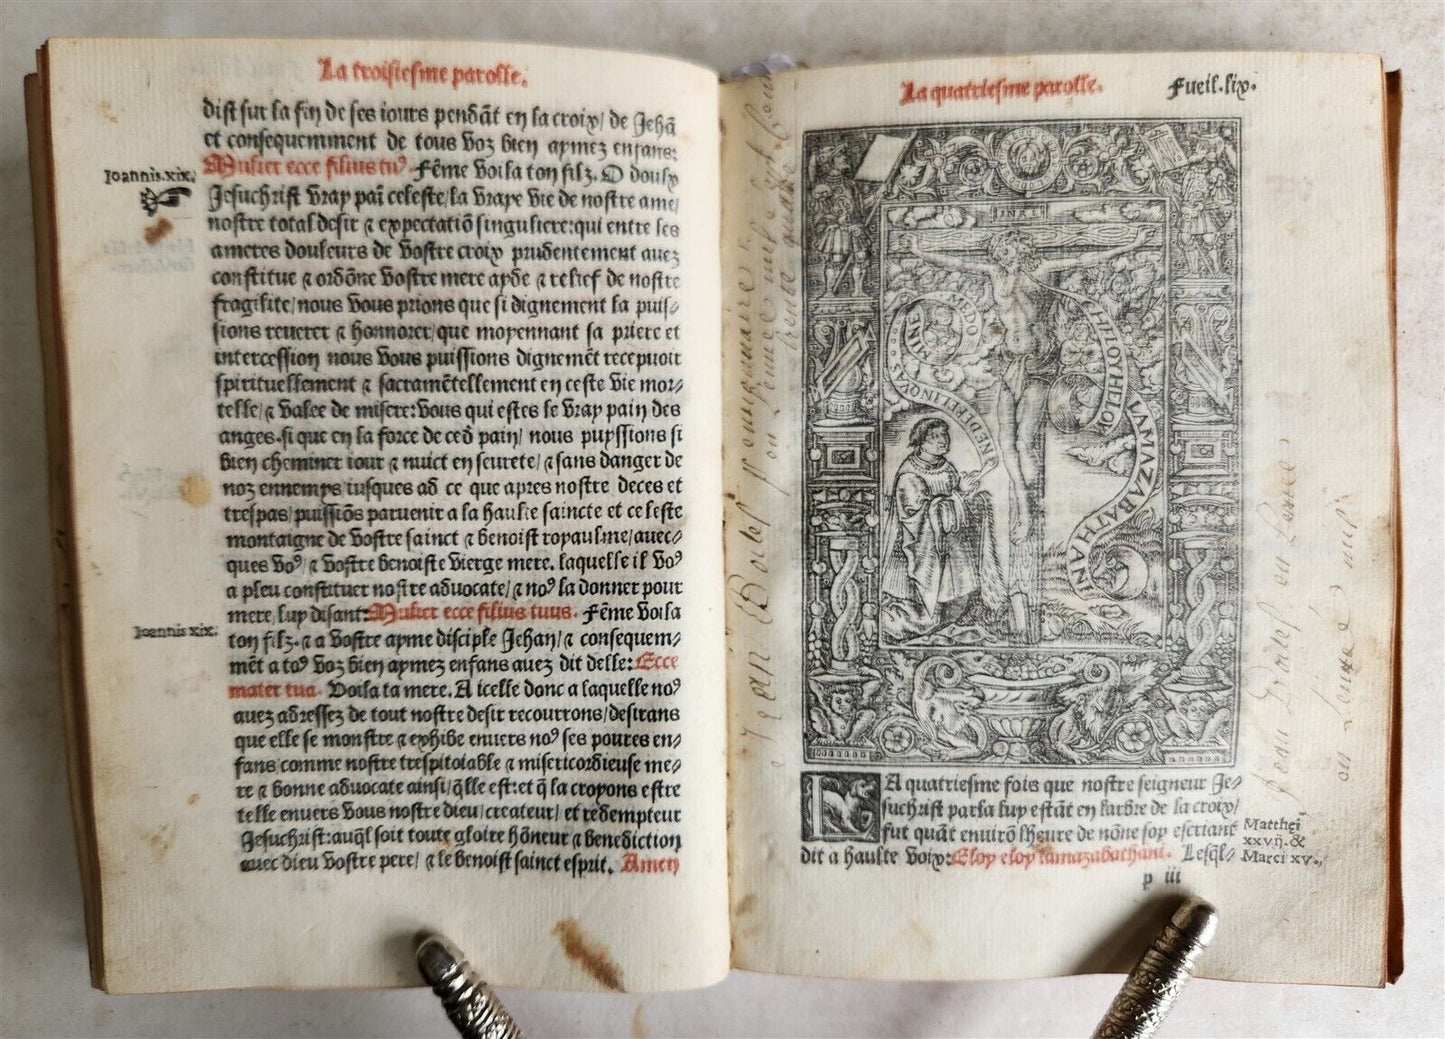 La troisiesme parolle.
dist sur la fin de ses iours pendãt en la croix/ de Jehã
et consequemment de tous voz bien aymez enfans:
Mulier ecce filius tuꝰ. Fẽme voila ton filz. O doulx
Joannis.xix.
Jesuchrist vray paĩ celeste/la vraye vie de nostre ame/
nostre total desir ⁊ expectatiõ singuliere:qui entre les
ameres douleurs de vostre croix prudentement auez
constitue ⁊ ordõne vostre mere ayde ⁊ relief de nostre
fragilite/nous vous prions que si dignement la puis/
sions reuerer ⁊ honnorer/que moyennant sa priere et
intercession nous vous puissions dignemẽt recepuoir
spirituellement ⁊ sacramẽtellement en ceste vie mor/
telle/⁊ valee de misere:vous qui estes le vray pain des
anges.si que en la force de ced pain/ nous puyssions si
bien cheminer iour ⁊ nuict en seurete/⁊ sans danger de
noz ennemys iusques ad ce que apres nostre deces et
trespas/puissiõs paruenir a la haulte saincte et celeste
montaigne de vostre sainct ⁊ benoist royaulme/auec/
ques voꝰ/⁊ vostre benoiste vierge mere. laquelle il voꝰ
a pleu constituer nostre aduocate/⁊ noꝰ la donner pour
mere/luy disant:Mulier ecce filius tuus. Fẽme voila
Joannis xix.
ton filz.⁊ a vostre ayme disciple Jehan/⁊ consequem/
mẽt a toꝰ voz bien aymez enfans auez dit delle:Ecce
mater tua. Voila ta mere. A icelle donc a laquelle noꝰ
auez adressez de tout nostre desir recourrons/desirans
que elle se monstre ⁊ exhibe enuers noꝰ ses poures en/
fans/comme nostre trespitoiable ⁊ misericordieuse me/
re ⁊ bonne aduocate ainsi/q̃lle est:et q̃ la croyons estre
telle enuers vous nostre dieu/createur/ et redempteur
Jesuchrist:auq̃l soit toute gloire hõneur ⁊ benediction
auec dieu vostre pere/⁊ le benoist sainct esprit. Amen
La quatriesme parolle. Fueil.lix.
INRI
MEDO
MINE
NEDELLINQVAS
HELOYHELOY LAMAZABATHANI
LA quatriesme fois que nostre seigneur Je/
suchrist parla luy estãt en larbre de la croix/
fut quãt enuirõ lheure de nõne soy escriant
dit a haulte voix:Eloy eloy lamazabathani. Lesq̃l/
Matthei
xxvij.&
Marci xv.
p iii